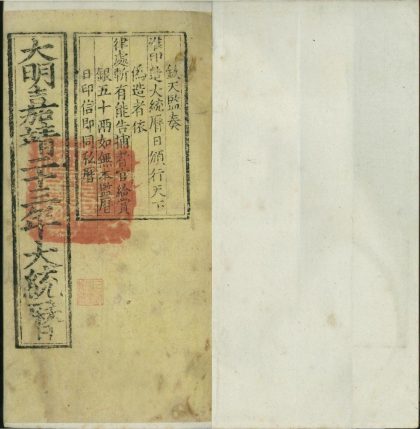 欽天監奏
准印造大統曆日頒行天下
偽造者依
律處斬有能告捕者官給賞
銀五十兩如無本監曆
日印信即同私曆
大明嘉靖二十三年大統曆